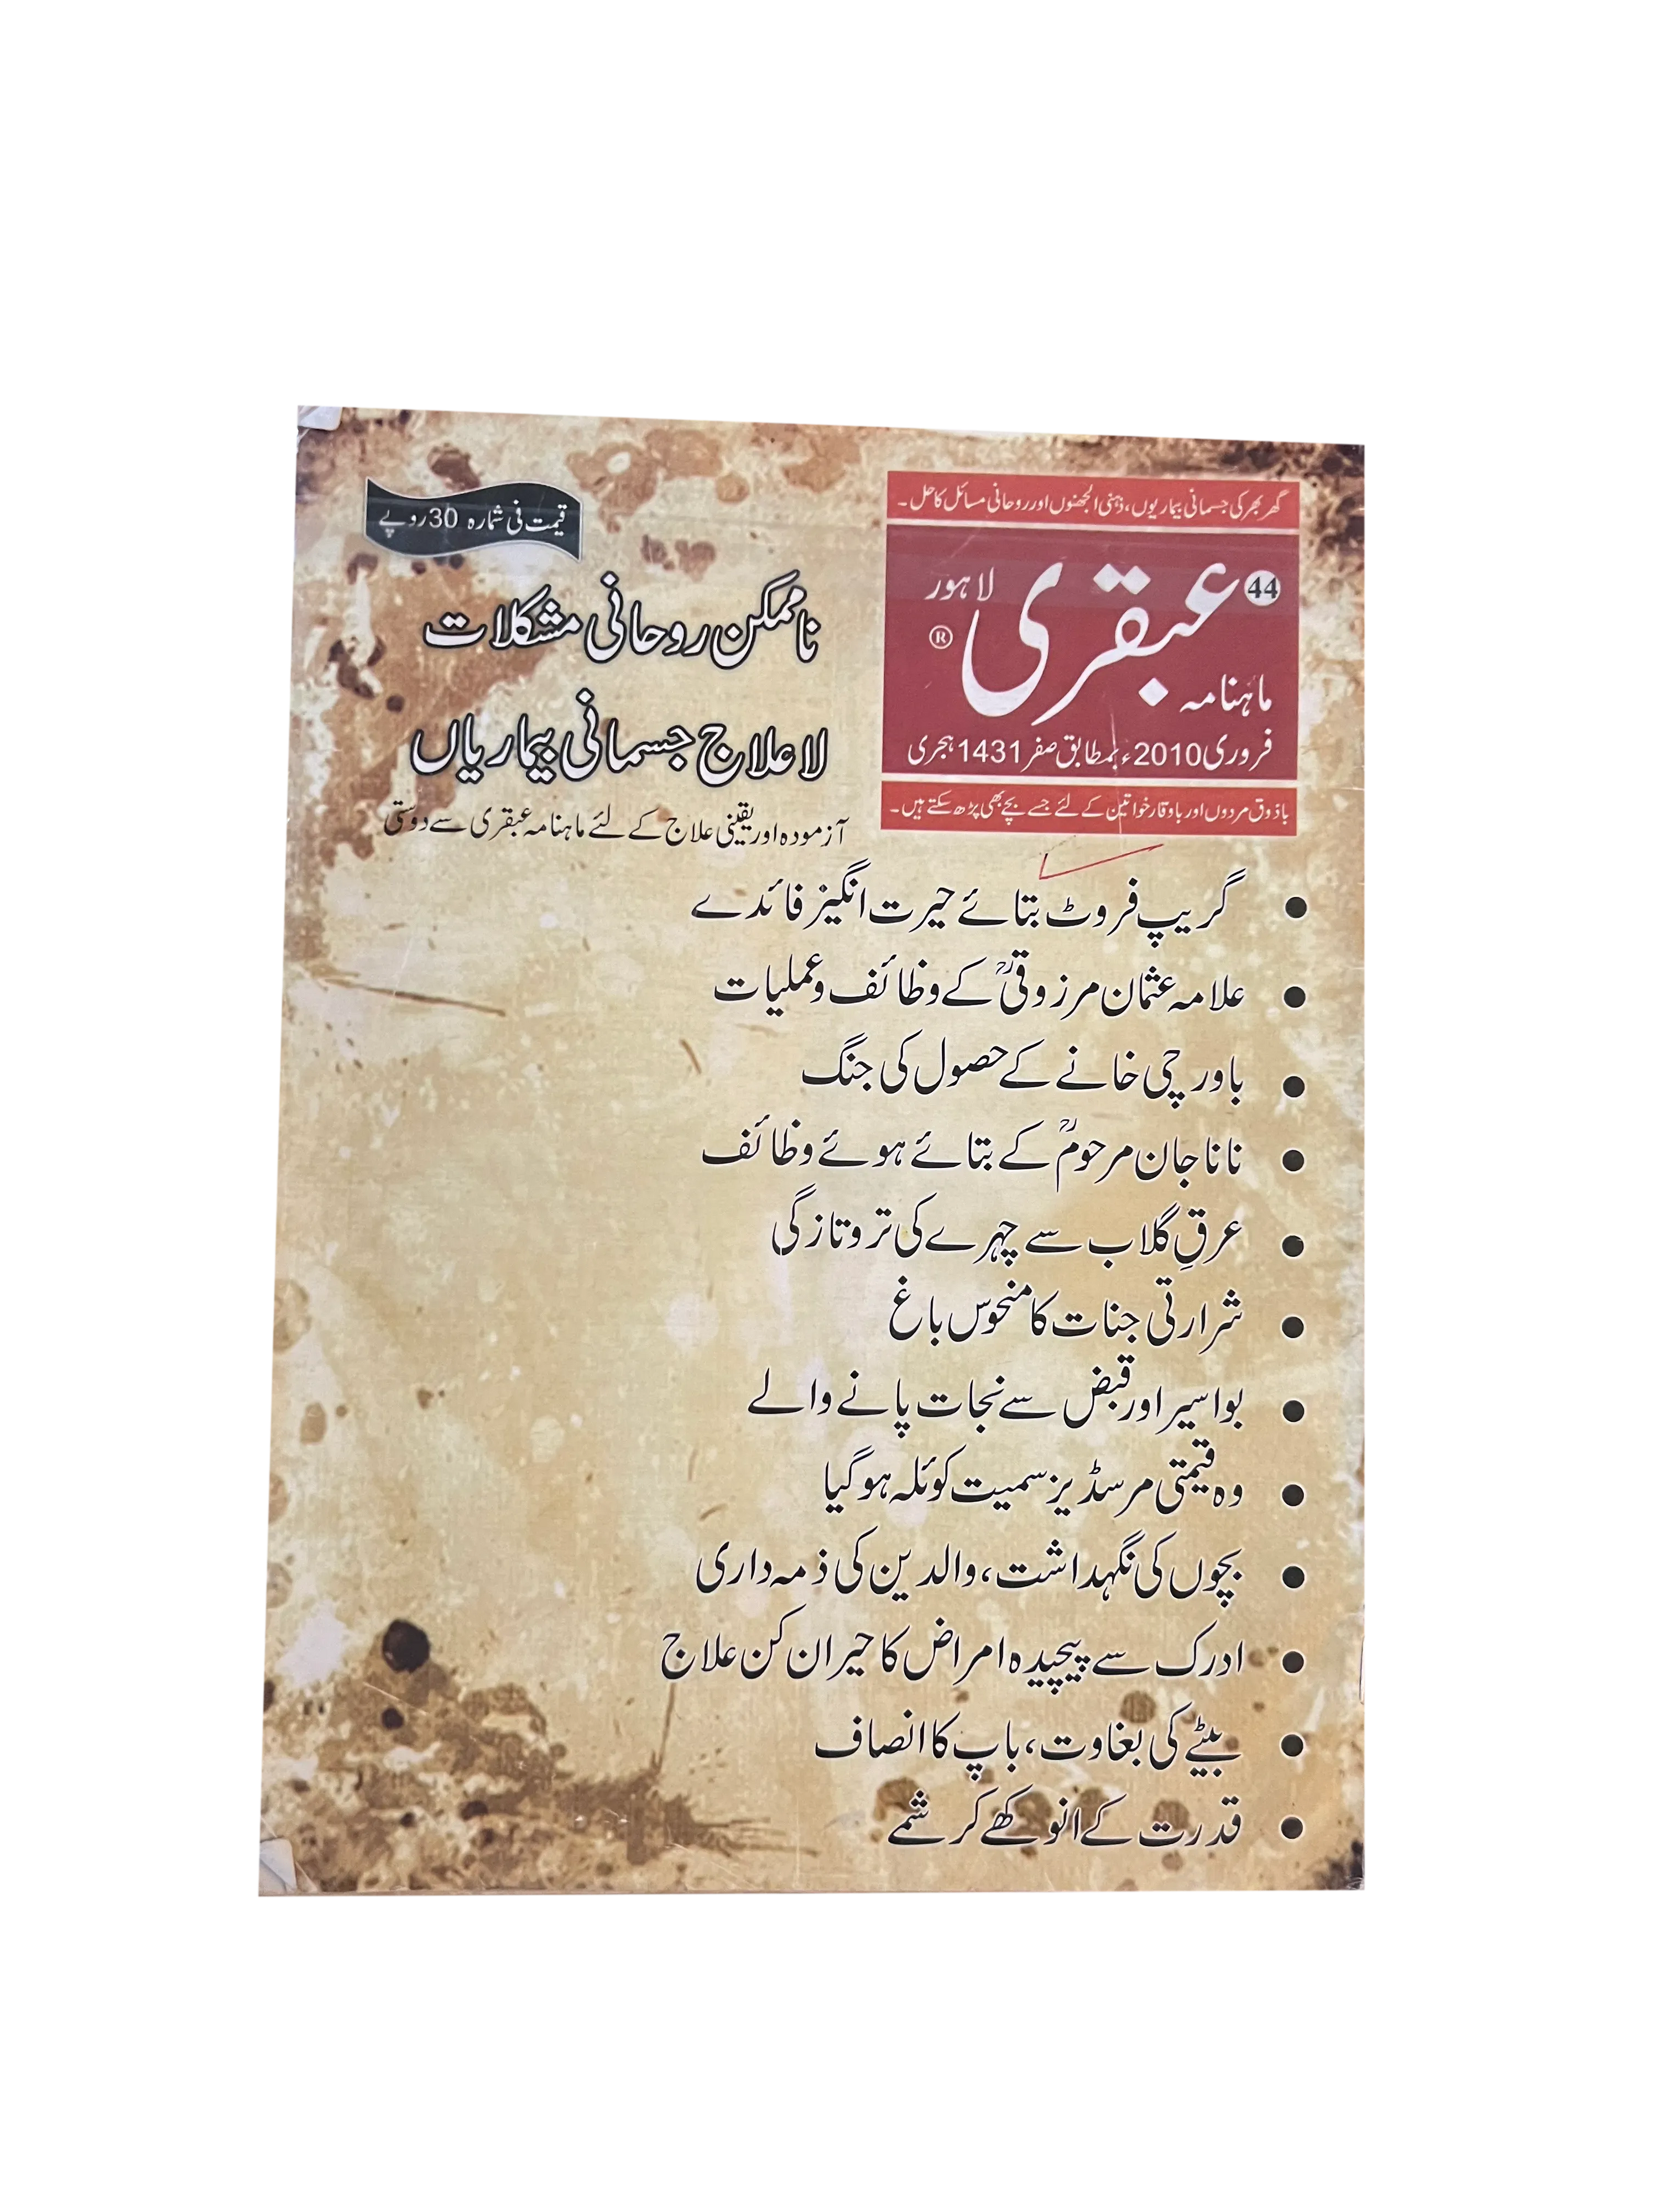 گھر بھر کی جسمانی بیماریوں، ذہنی الجھنوں اور روحانی مسائل کا حل۔
44
عبقری
لاہور
®
ماہنامہ
فروری 2010ء بمطابق صفر 1431 ہجری
باذوق مردوں اور باوقار خواتین کے لئے جسے بچے بھی پڑھ سکتے ہیں۔
قیمت فی شمارہ 30 روپے
ناممکن روحانی مشکلات
لاعلاج جسمانی بیماریاں
آزمودہ اور یقینی علاج کے لئے ماہنامہ عبقری سے دوستی
• گریپ فروٹ بتائے حیرت انگیز فائدے
• علامہ عثمان مرزوقیؒ کے وظائف و عملیات
• باورچی خانے کے حصول کی جنگ
• نانا جان مرحومؒ کے بتائے ہوئے وظائف
• عرقِ گلاب سے چہرے کی تروتازگی
• شرارتی جنات کا منحوس باغ
• بواسیر اور قبض سے نجات پانے والے
• وہ قیمتی مرسڈیز سمیت کوئلہ ہوگیا
• بچوں کی نگہداشت، والدین کی ذمہ داری
• ادرک سے پیچیدہ امراض کا حیران کن علاج
• بیٹے کی بغاوت، باپ کا انصاف
• قدرت کے انوکھے کرشمے